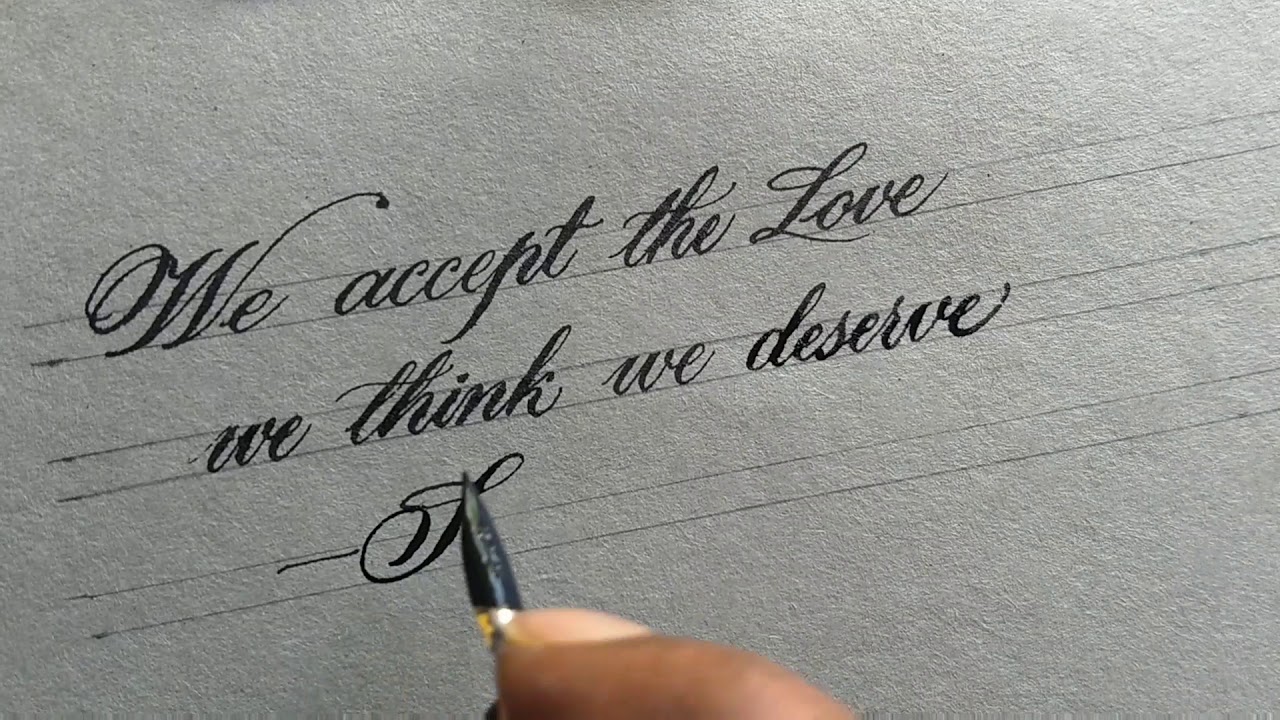 We accept the Love
we think we deserve
—S